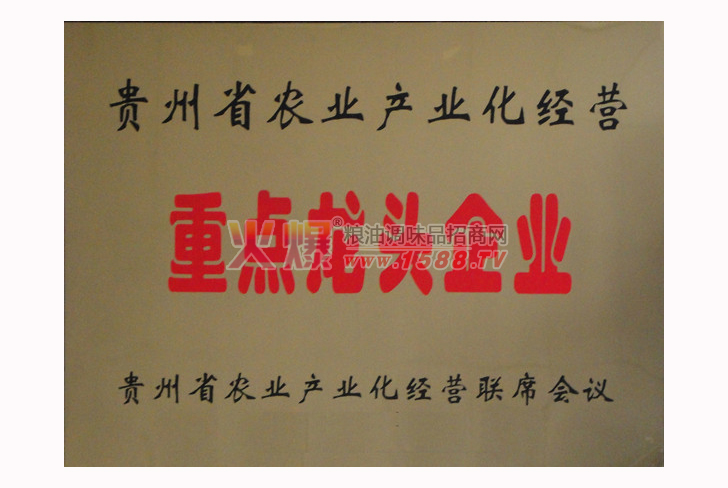 贵州省农业产业化经营
重点龙头企业
火爆®粮油调味品招商网
www.1588.TV
贵州省农业产业化经营联席会议